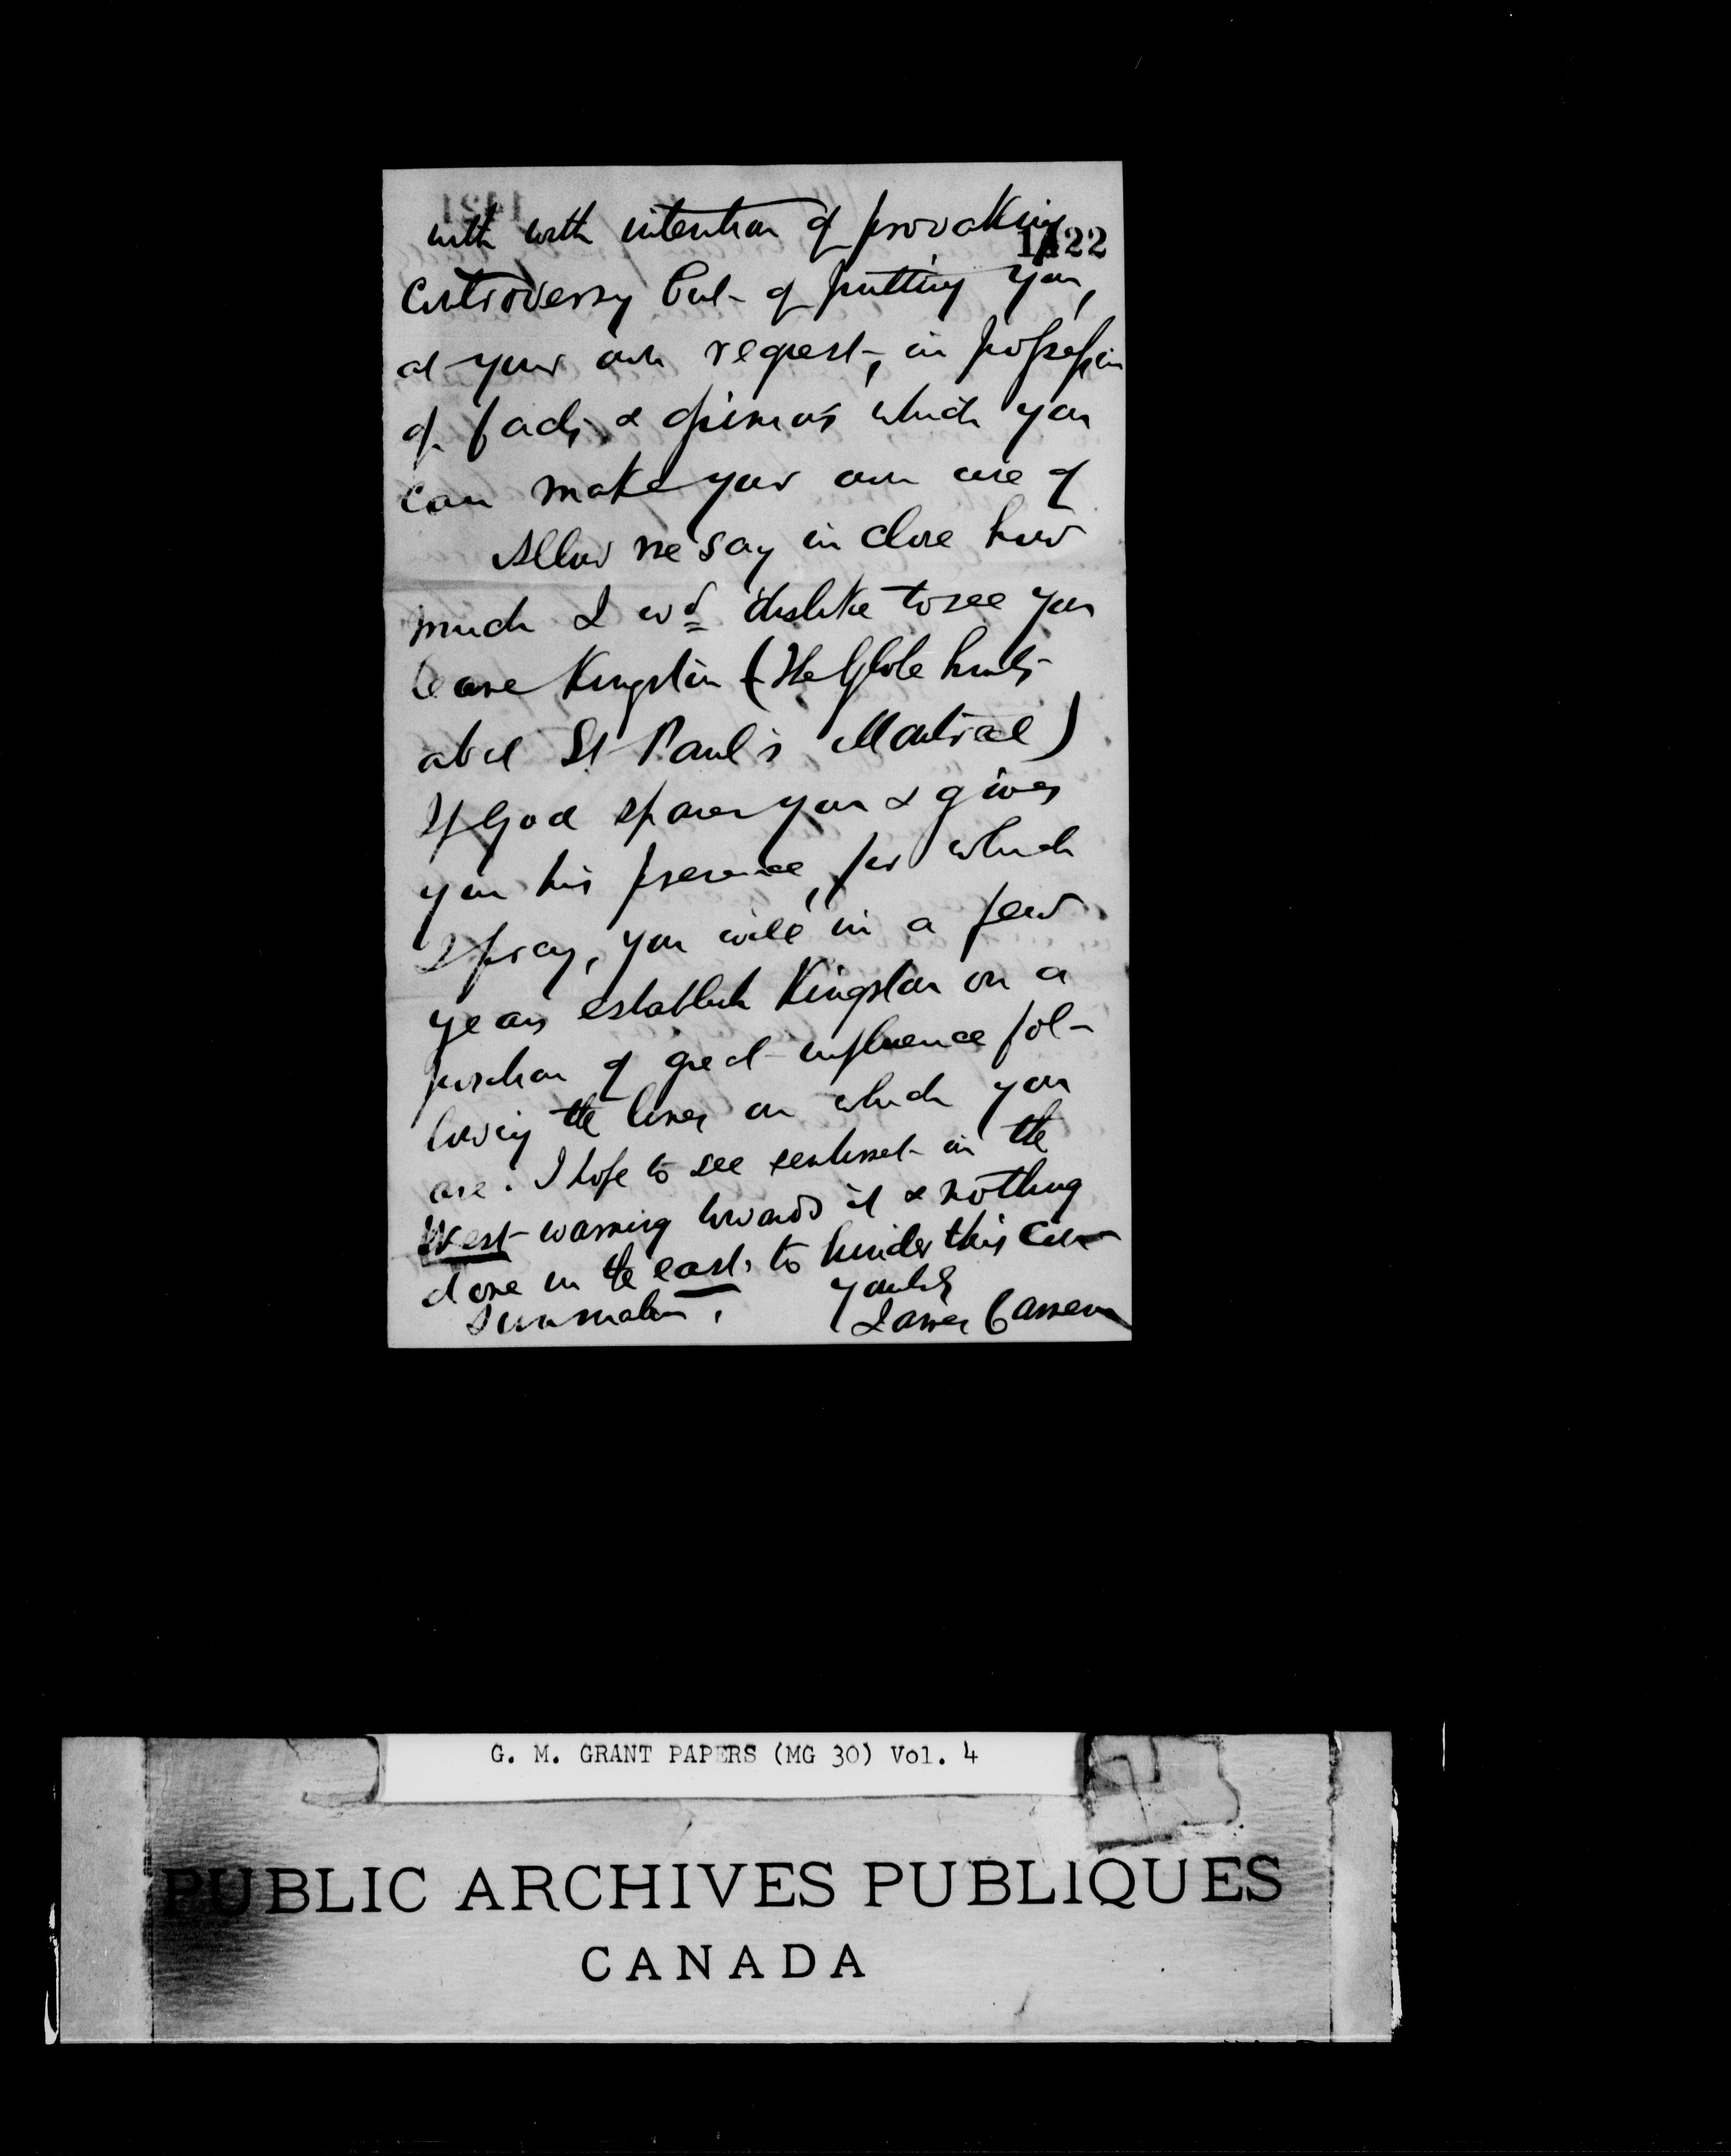 with with intention of provoking
1422
controversy but of putting you,
at your own request, in possession
of facts & opinions which you
can make your own use of
Allow me say in close how
much I wd dislike to see you
leave Kingston (The Globe hints
about St Paul's Montreal)
If God spares you & gives
you his presence, for which
I pray, you will in a few
years establish Kingston on a
position of great influence fol-
lowing the lines on which you
are. I hope to see sentiment in the
West warming towards it & nothing
done in the east, to hinder this con
summation.
yours
James Cameron
G. M. GRANT PAPERS (MG 30) Vol. 4
PUBLIC ARCHIVES PUBLIQUES
CANADA